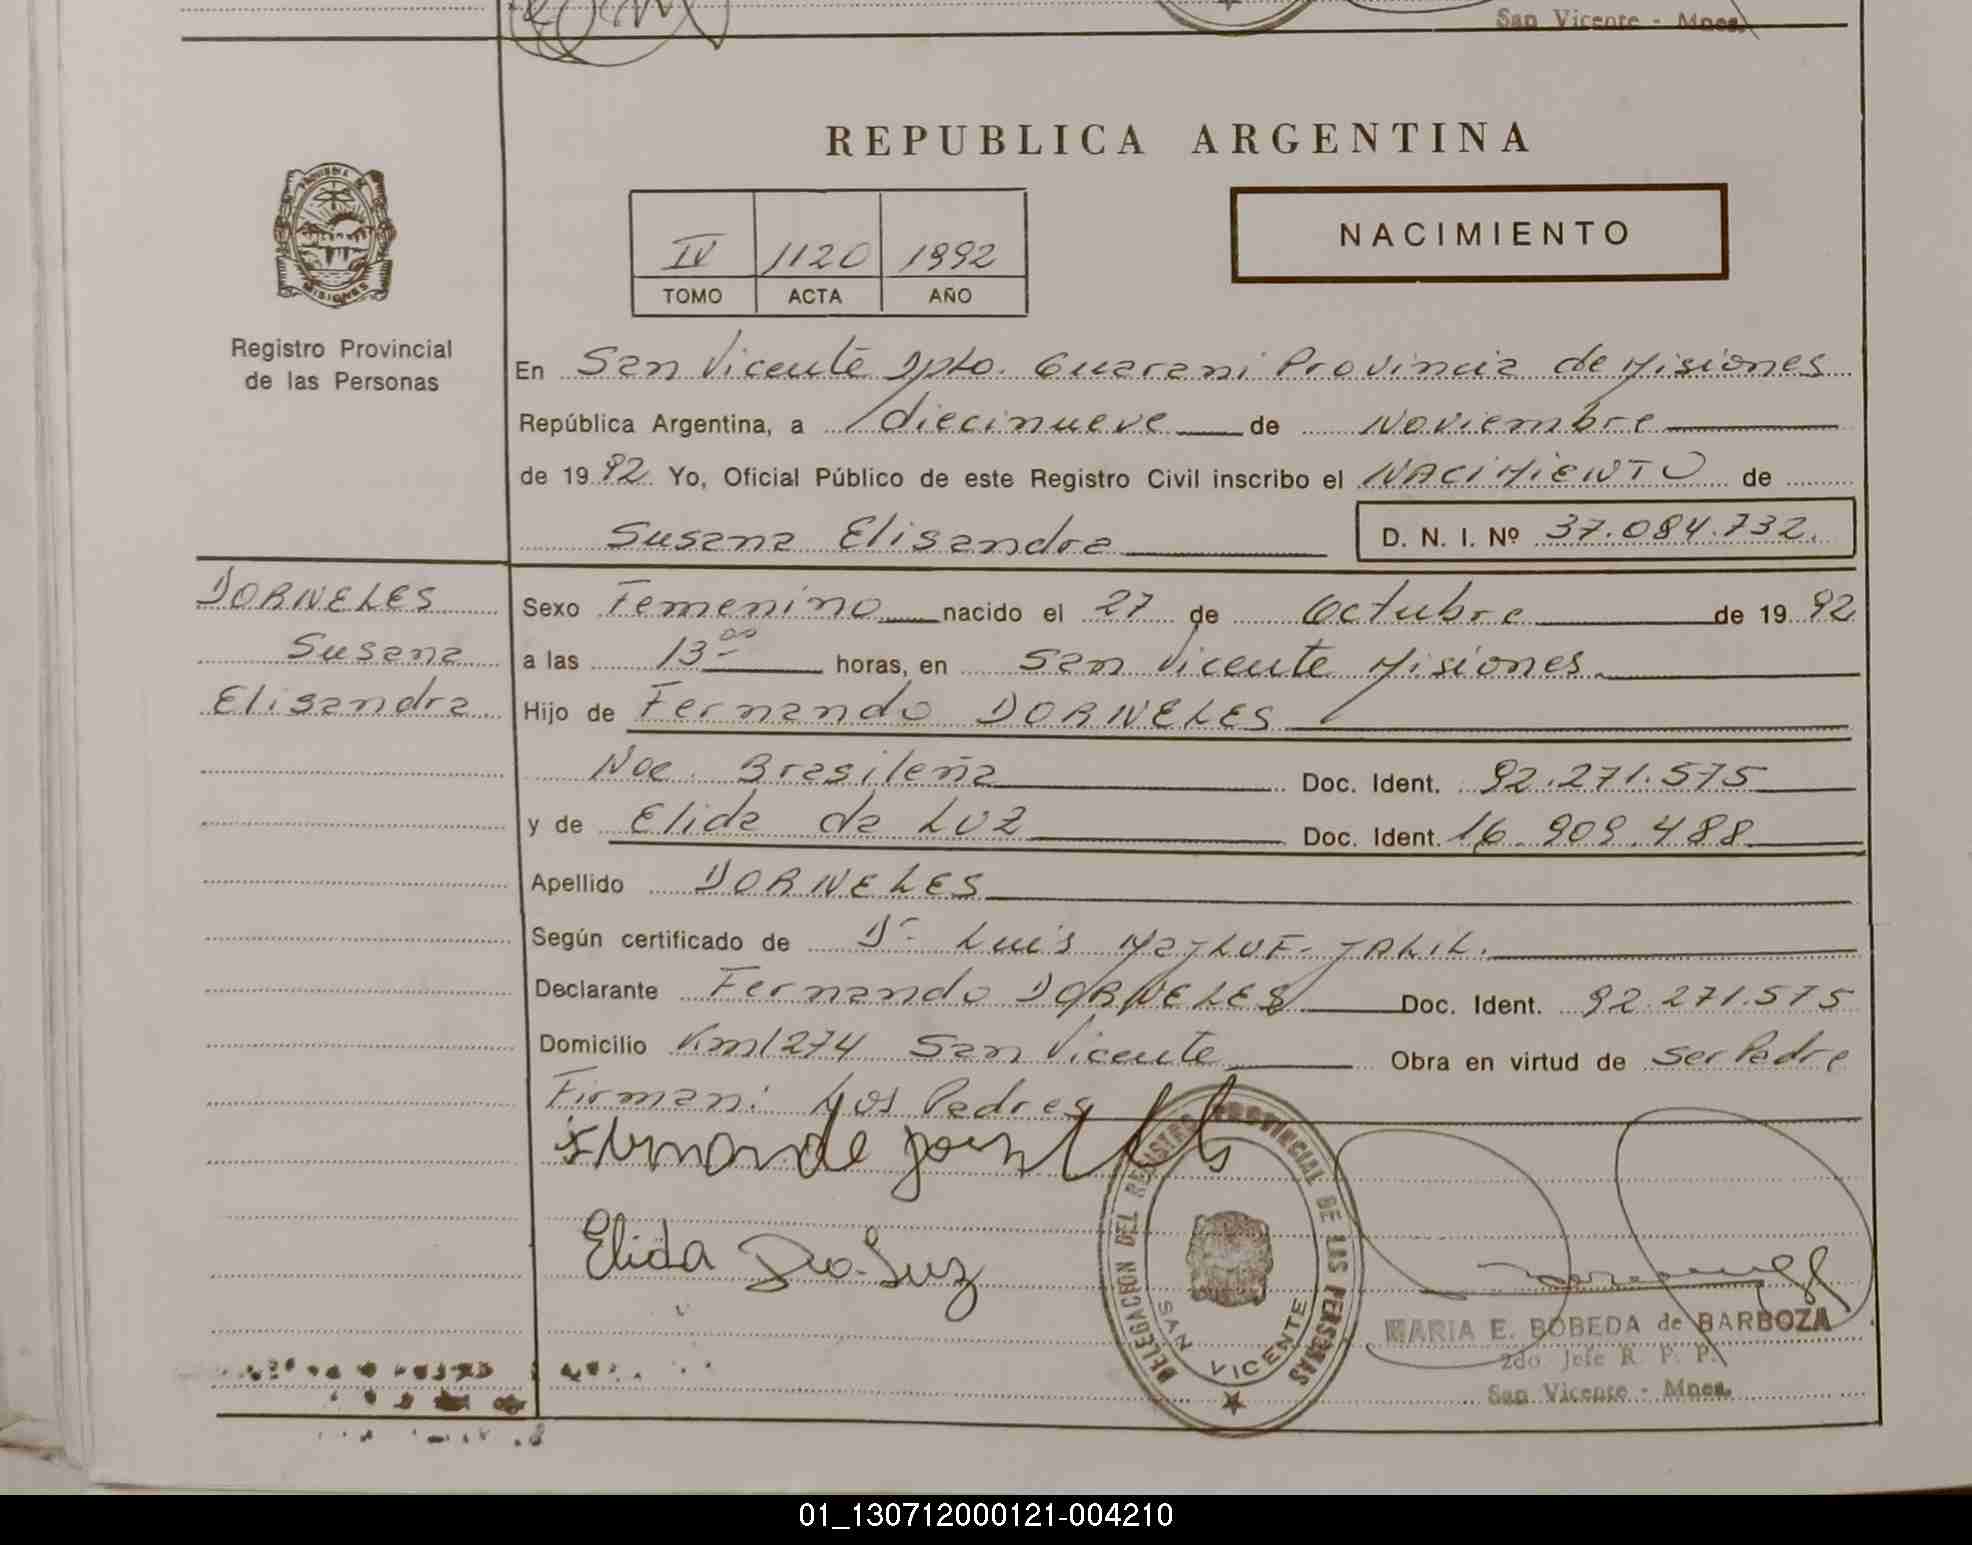 San Vicente - Mnes.
REPUBLICA ARGENTINA
PROVINCIA DE
MISIONES
Registro Provincial
de las Personas
IV 1120 1992
TOMO ACTA AÑO
NACIMIENTO
En San Vicente Dpto. Guarani Provincia de Misiones
República Argentina, a diecinueve de Noviembre
de 1992 Yo, Oficial Público de este Registro Civil inscribo el NACIMIENTO de
Susana Elisandra D. N. I. Nº 37.084.732.
DORNELES
Susana
Elisandra
Sexo Femenino nacido el 27 de Octubre de 1992
a las 13 00 horas, en San Vicente Misiones.
Hijo de Fernando DORNELES
Nac. Brasileña Doc. Ident. 92.271.575
y de Elida da LUZ Doc. Ident. 16.909.488
Apellido DORNELES
Según certificado de Dr Luis JALIL.
Declarante Fernando DORNELES Doc. Ident. 92.271.575
Domicilio Km 1274 San Vicente Obra en virtud de ser Padre
Firman: Los Padres
Elida Luz
DELEGACION DEL REGISTRO PROVINCIAL DE LAS PERSONAS
SAN VICENTE
MARIA E. BOBEDA de BARBOZA
2do Jefe R. P. P.
San Vicente - Mnes.
01_130712000121-004210